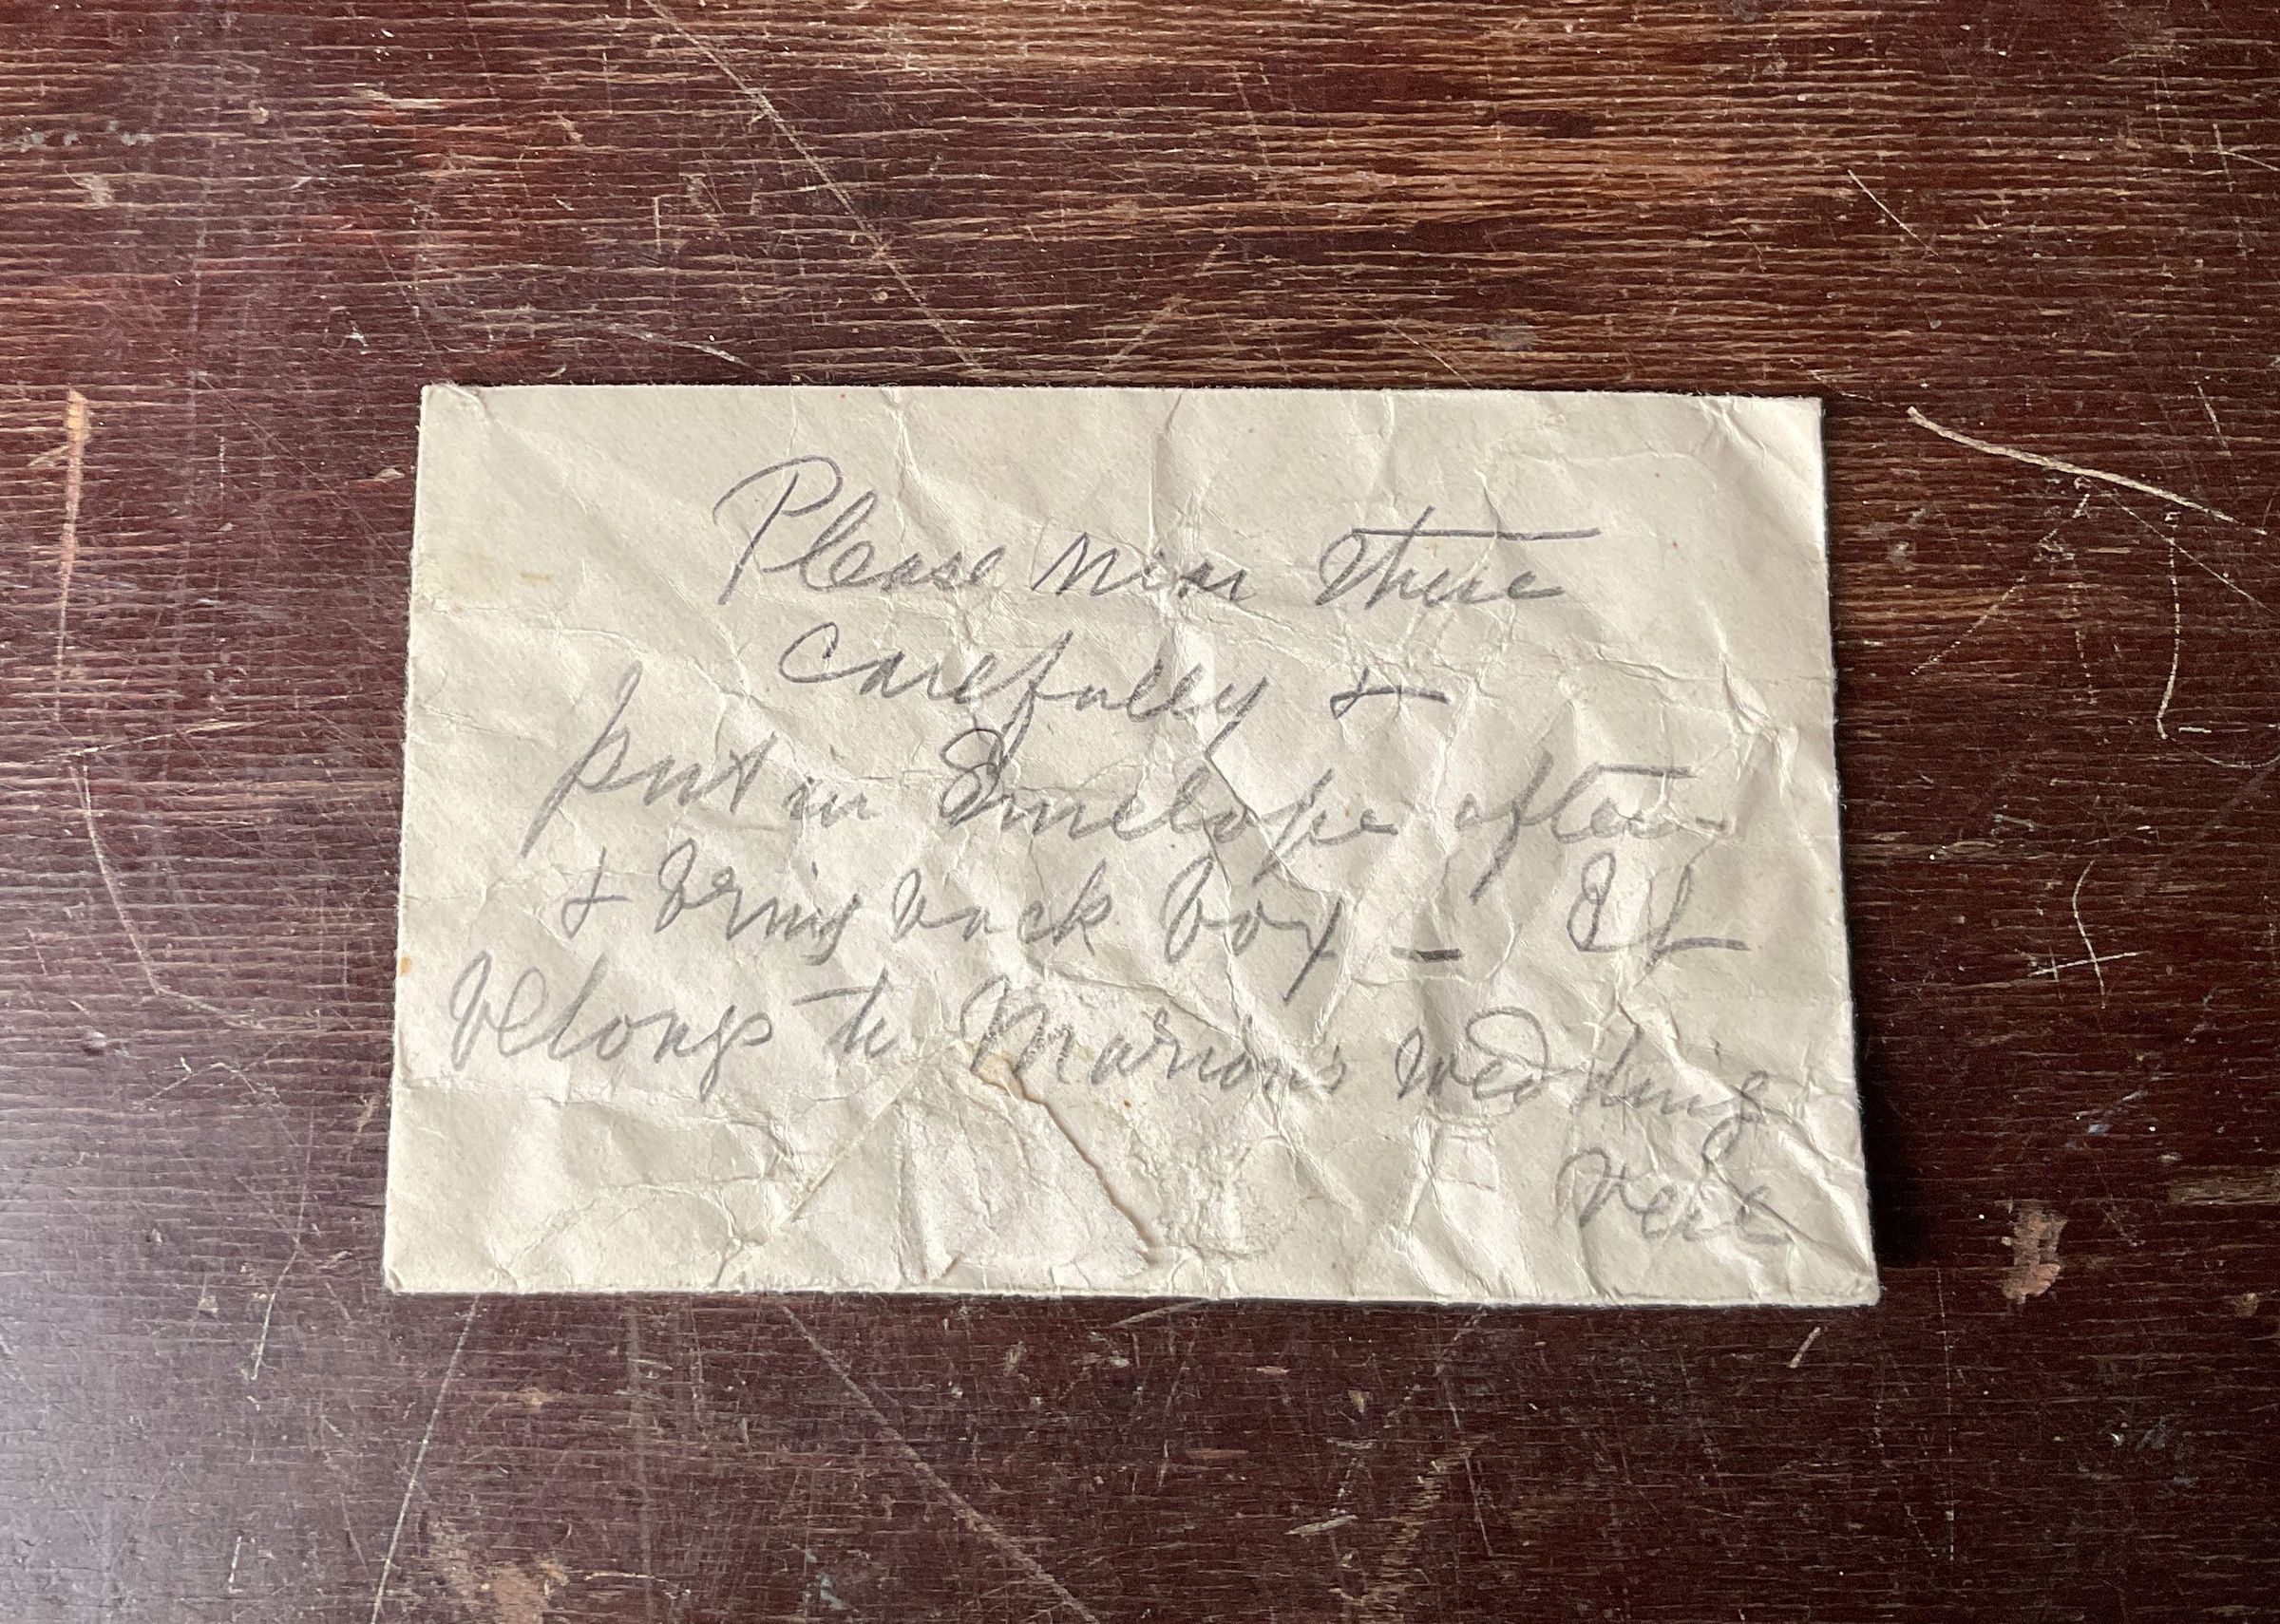 Please wear these
carefully &
put in Envelope after
& bring back box – It
belongs to Marion's wedding
veil